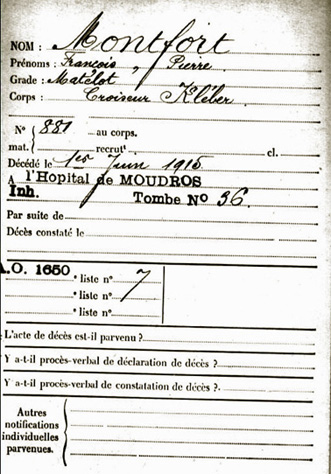 NOM : Montfort
Prénoms : François, Pierre
Grade : Matelot
Corps : Croiseur Kléber.
N° mat. { 881 au corps.
recrutt cl.
Décédé le 1er Juin 1915
A l'Hopital de MOUDROS
Inh. Tombe No 36.
Par suite de
Décès constaté le
A.O. 1650
liste n° 7
liste n°
liste n°
L'acte de décès est-il parvenu ?
Y a-t-il procès-verbal de déclaration de décès ?
Y a-t-il procès-verbal de constatation de décès ?
Autres
notifications
individuelles
parvenues.